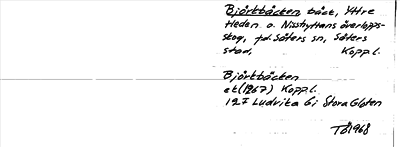 Björkbäcken, bäck, Yttre
Heden o. Nisshyttans överlopps-
skog, f.d. Säters sn, Säters
stad, Kopp.l.
Björkbäcken
ek (1967) Kopp.l.
12F Ludvika 6i Stora Gloten
TÅ 1968